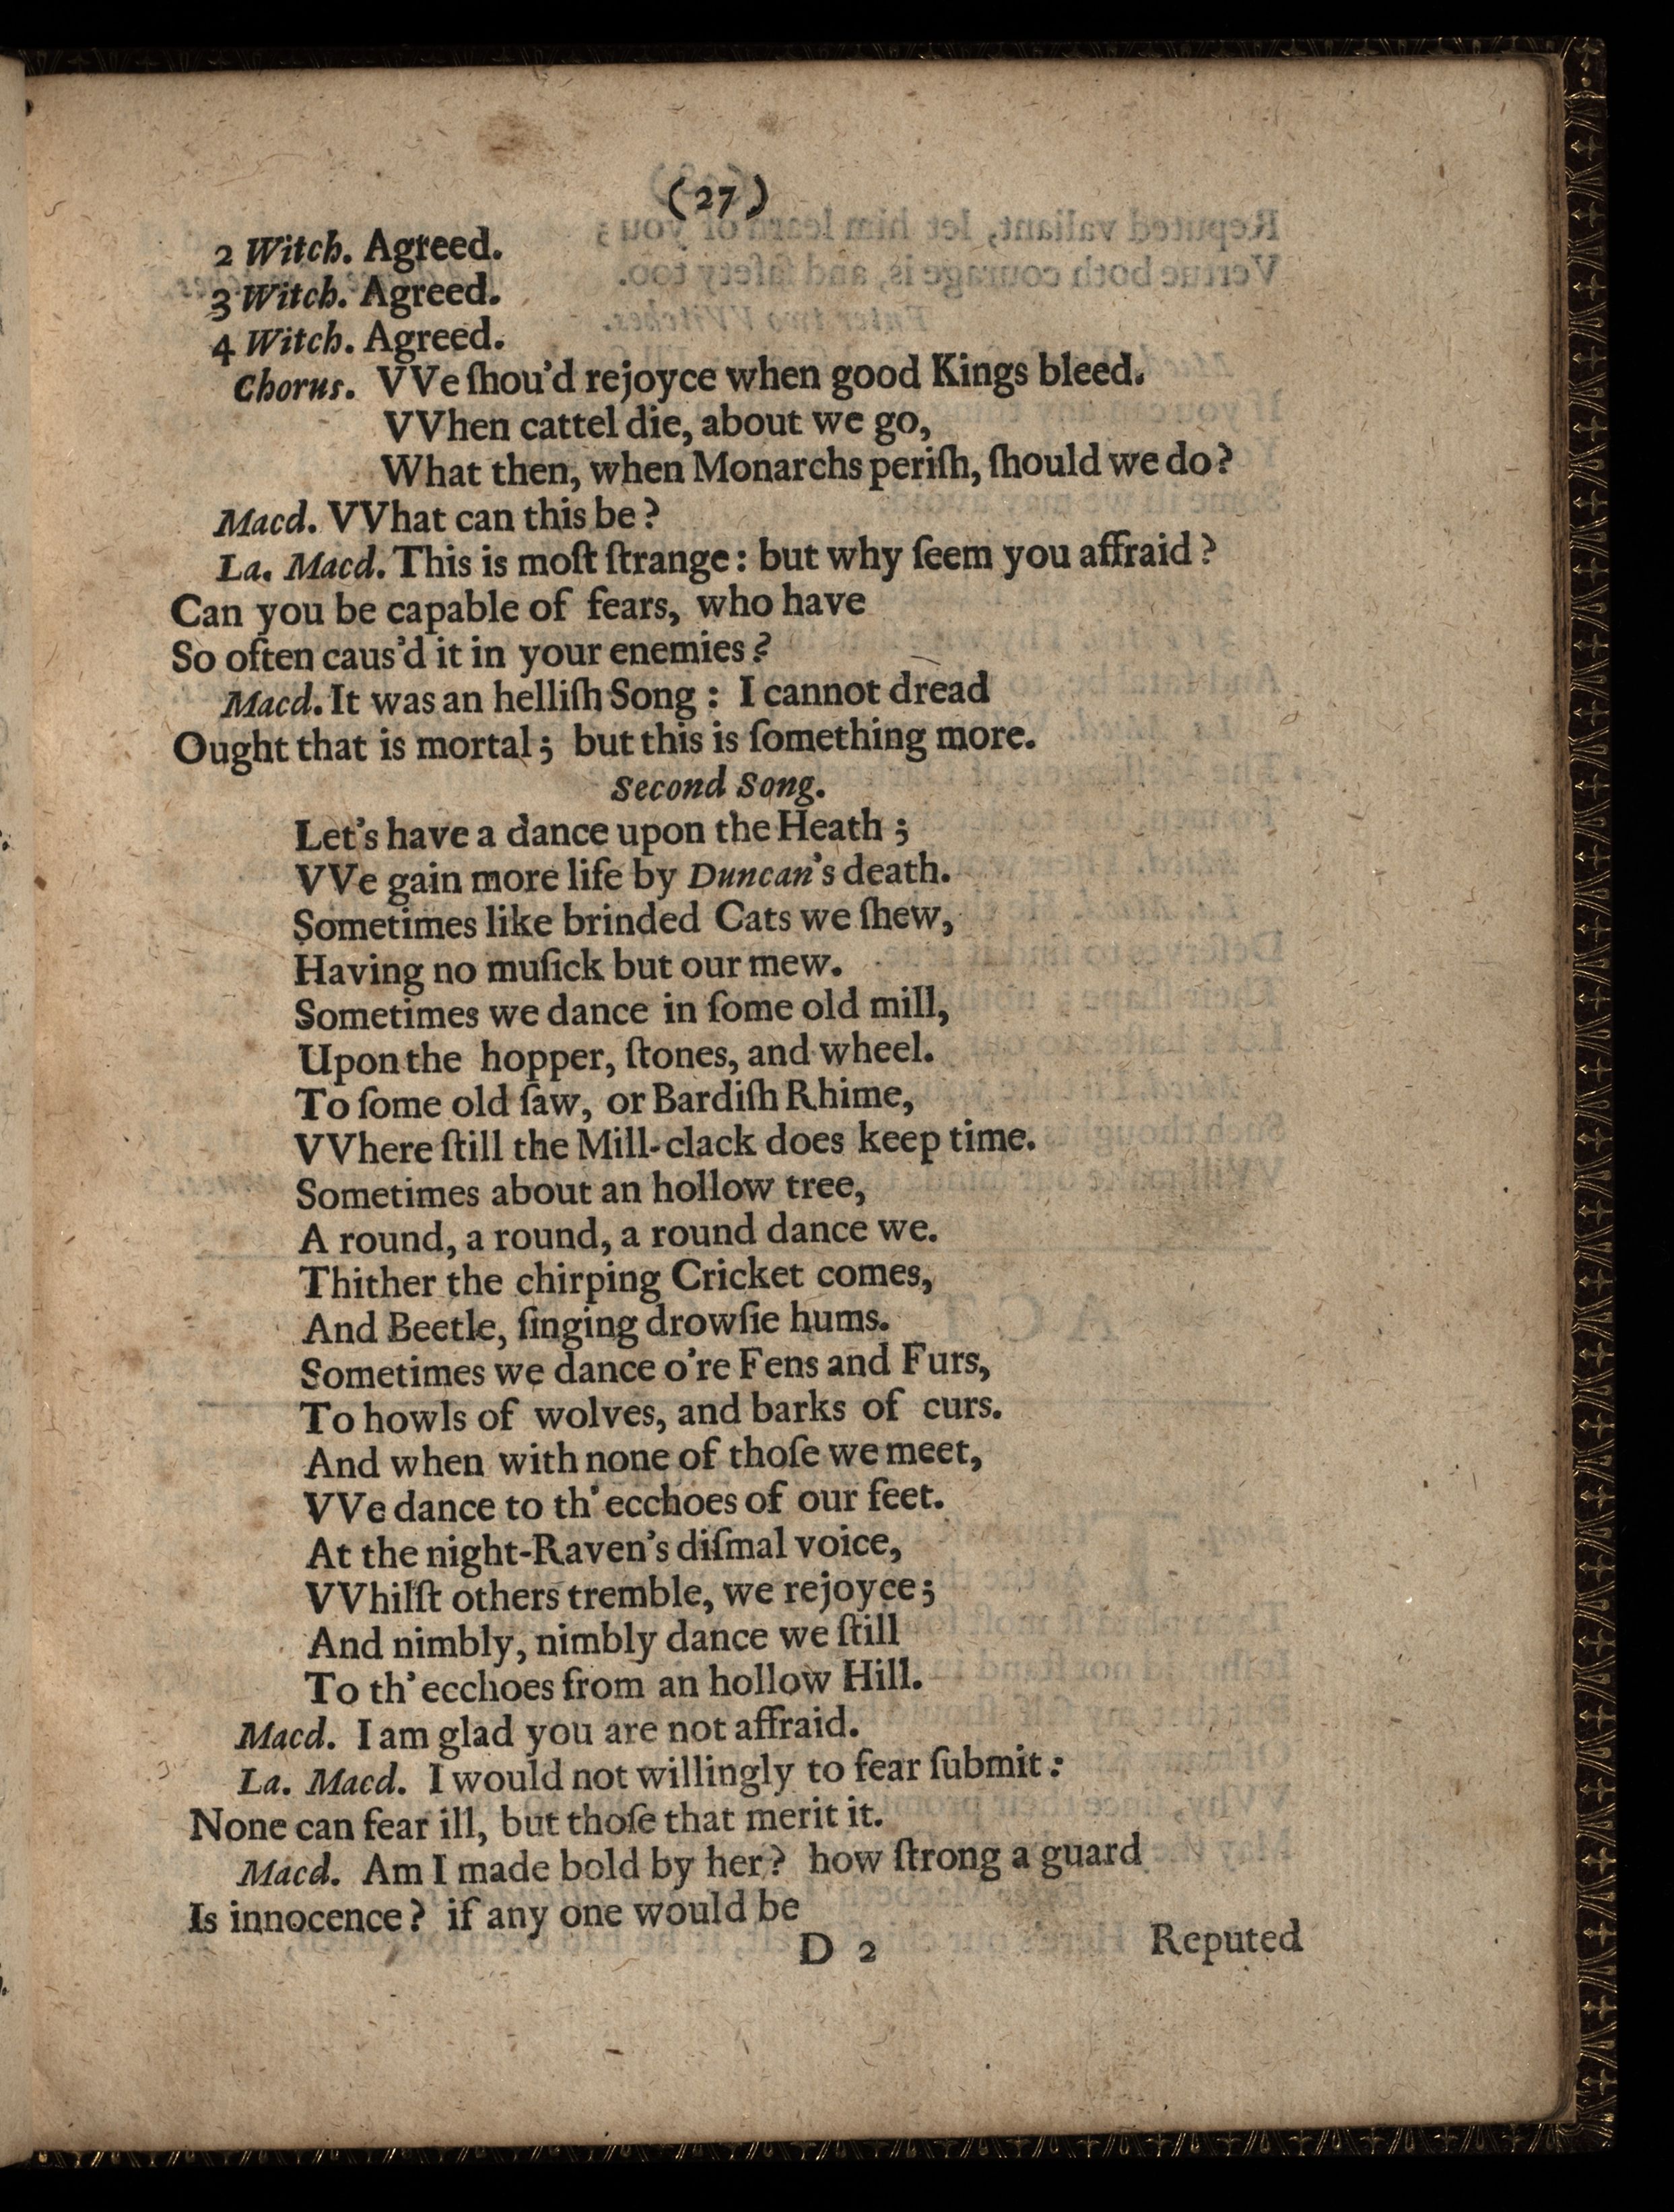 (27)
2 Witch. Agreed.
3 Witch. Agreed.
4 Witch. Agreed.
Chorus. VVe ſhou'd rejoyce when good Kings bleed.
VVhen cattel die, about we go,
What then, when Monarchs periſh, ſhould we do?
Macd. VVhat can this be?
La. Macd. This is moſt ſtrange: but why ſeem you affraid?
Can you be capable of fears, who have
So often caus'd it in your enemies?
Macd. It was an helliſh Song: I cannot dread
Ought that is mortal; but this is ſomething more.
Second Song.
Let's have a dance upon the Heath;
VVe gain more life by Duncan's death.
Sometimes like brinded Cats we ſhew,
Having no muſick but our mew.
Sometimes we dance in ſome old mill,
Upon the hopper, ſtones, and wheel.
To ſome old ſaw, or Bardiſh Rhime,
VVhere ſtill the Mill-clack does keep time.
Sometimes about an hollow tree,
A round, a round, a round dance we.
Thither the chirping Cricket comes,
And Beetle, ſinging drowſie hums.
Sometimes we dance o're Fens and Furs,
To howls of wolves, and barks of curs.
And when with none of thoſe we meet,
VVe dance to th' ecchoes of our feet.
At the night-Raven's diſmal voice,
VVhilſt others tremble, we rejoyce;
And nimbly, nimbly dance we ſtill
To th' ecchoes from an hollow Hill.
Macd. I am glad you are not affraid.
La. Macd. I would not willingly to fear ſubmit:
None can fear ill, but thoſe that merit it.
Macd. Am I made bold by her? how ſtrong a guard
Is innocence? if any one would be
D 2 Reputed